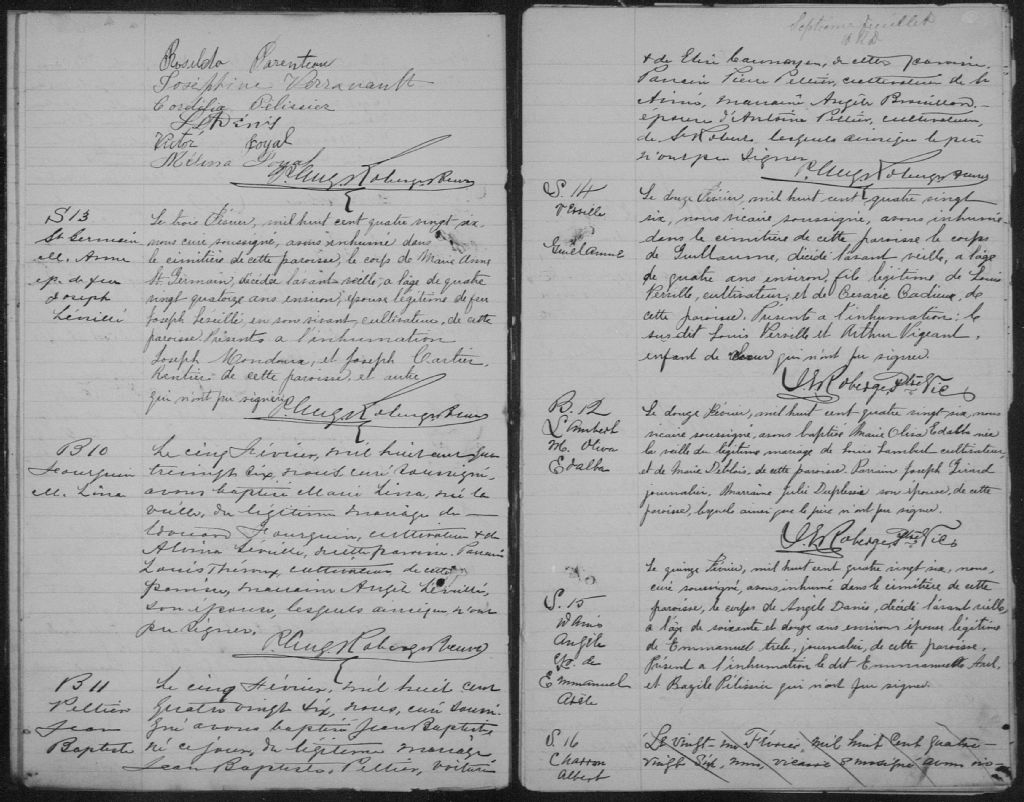 Rosilda Parenteau
Joséphine Verranault
Cordélia Pélissier
Victor Joyal
Mélina Joyal
P. Aug. Roberge Ptre curé
S 13
St Germain
M. Anne
ép. de feu
Joseph
Léveillé
Le trois Février, mil huit cent quatre vingt six,
nous curé soussigné, avons inhumé dans
le cimitière de cette paroisse, le corps de Marie Anne
St. Germain, décédée l'avant veille, a l'age de quatre
vingt quatorze ans environ, épouse légitime de feu
Joseph Léveillé, en son vivant, cultivateur, de cette
paroisse. Présents a l'inhumation
Joseph Mondoux, et Joseph Chartier,
Rentier de cette paroisse, et autre
qui n'ont pu signer.
P. Aug. Roberge Ptre curé
B 10
Fourquin
M. Lina
Le cinq Février, mil huit cent qua
trevingt six, nous curé soussigné,
avons baptisé Marie Lina, née la
veille, du légitime mariage de
Edouard Fourquin, cultivateur & de
Alvina Léveillé, de cette paroisse. Parrain
Louis cultivateur, de cette
paroisse, marraine Angèle Léveillé,
son épouse, lesquels ainsi que n'ont
pu signer.
P. Aug. Roberge Ptre curé
B 11
Peltier
Jean
Baptiste
Le cinq Février, mil huit cent
quatre vingt six, nous, curé soussi-
gné avons baptisé Jean Baptiste,
né ce jour, du légitime mariage
Jean Baptiste Peltier, voiturier
Septième feuillet
& de Elise Cournoyer, de cette paroisse.
Parrain Pierre Peltier, cultivateur de St
Aimé, marraine Angèle Brouillard,
épouse d'Antoine Peltier, cultivateur,
de St Robert, lesquels ainsi que le père
n'ont pu signer.
P. Aug. Roberge Ptre curé
S. 14
Verville
Guillaume
Le douze Février, mil huit cent quatre vingt
six, nous vicaire soussigné, avons inhumé
dans le cimitière de cette paroisse le corps
de Guillaume, décédé l'avant veille, a l'age
de quatre ans environ, fils légitime de Louis
Verville, cultivateur, et de Césarie Cadieux, de
cette paroisse. Présents a l'inhumation: le
sus dit Louis Verville et Arthur Vigeant,
enfant de chœur qui n'ont pu signer.
J. E. Roberge, Ptre Vic
B. 12
Lambert
M. Oliva
Edalba
Le douze Février, mil huit cent quatre vingt six, nous
vicaire soussigné, avons baptisé Marie Oliva Edalba née
la veille du légitime mariage de Louis Lambert cultivateur,
et de Marie Deblois, de cette paroisse. Parrain Joseph Girard
journalier, Marraine Julie Duplessis son épouse, de cette
paroisse, lesquels ainsi que le père n'ont pu signer.
J. E. Roberge, Ptre Vic
S. 15
Danis
Angèle
ép. de
Emmanuel
Atèle
Le quinze Février, mil huit cent quatre vingt six, nous,
curé soussigné, avons, inhumé dans le cimitière de cette
paroisse, le corps de Angèle Danis, décédé l'avant veille,
a l'age de soixante et douze ans environ épouse légitime
de Emmanuel journalier, de cette paroisse.
Présent a l'inhumation le dit Emmanuel
et Bazile Pélissier qui n'ont pu signer.
S. 16
Charron
Albert
Le vingt-un Février, mil huit cent quatre-
vingt six, nous, vicaire soussigné avons